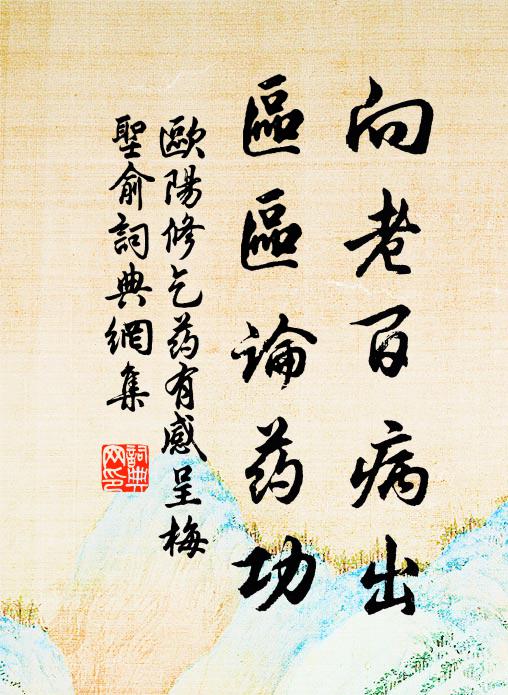 向老百病出
區區論药功
歐陽修乞药有感呈梅
聖俞詞典網集
詞典
网印